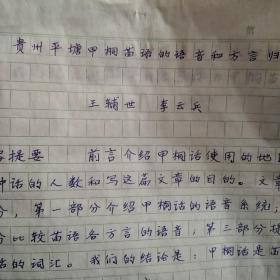 贵州平塘甲桐苗语的语音和方言归
王辅世 李云兵
提要 前言介绍甲桐话使用的地
种话的人数和写这篇文章的目的。文章
分，第一部分介绍甲桐话的语音系统，
分比较苗语各方言的语音，第三部分
话的词汇。我们的结论是：甲桐话是